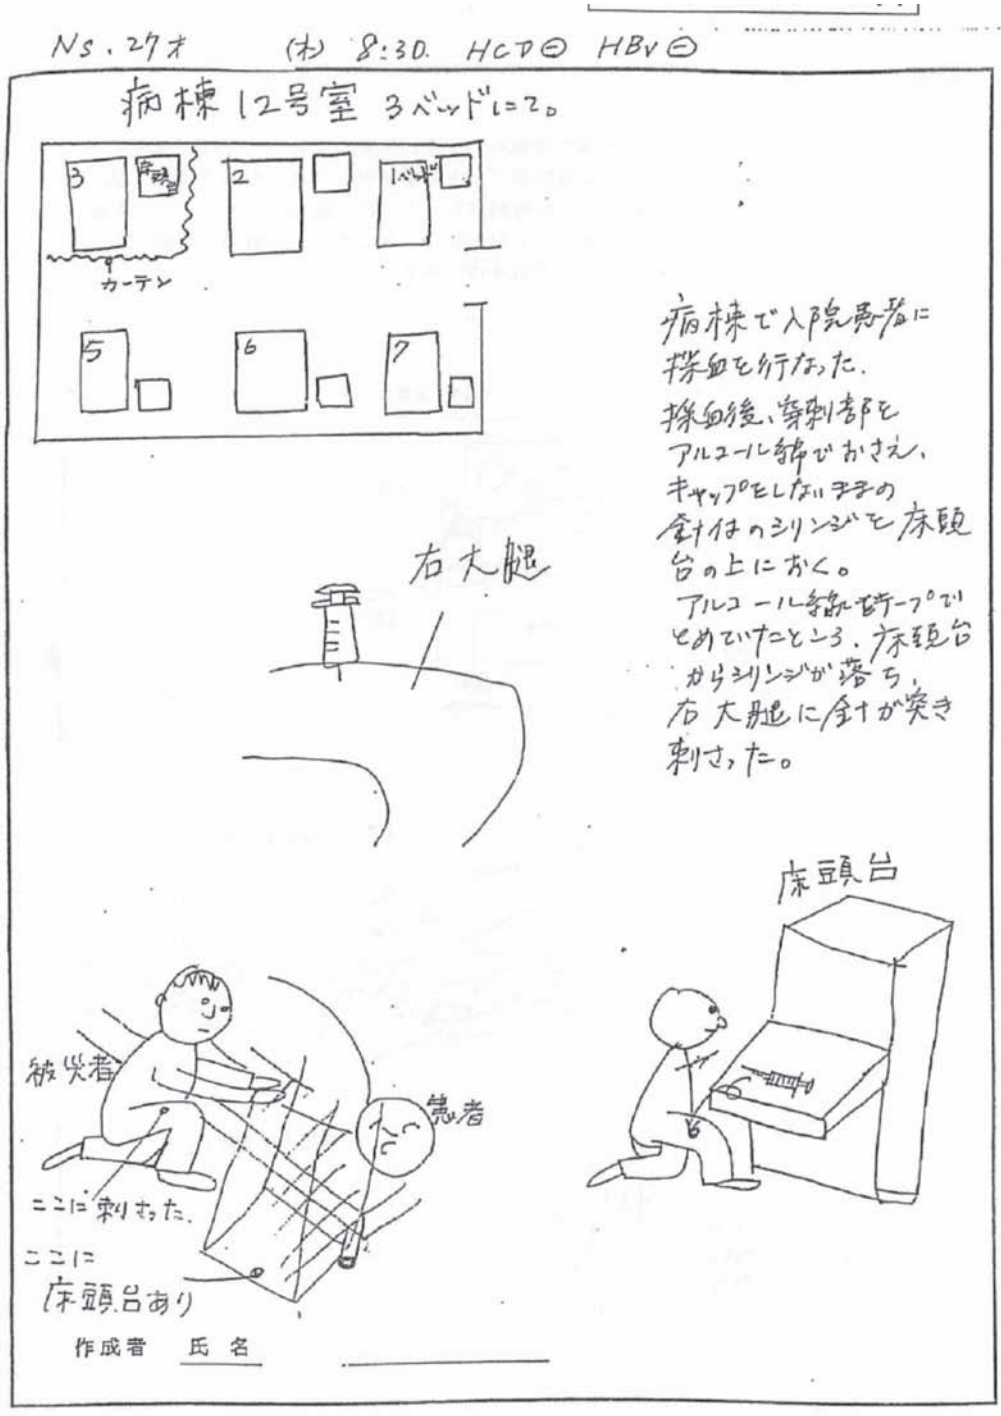 Ns. 27才 (水) 8:30. HCV⊖ HBV⊖
病棟12号室 3ベッドにて。
3
床頭台
2
1ベッド
カーテン
5
6
7
病棟で入院患者に
採血を行なった.
採血後、穿刺部を
アルコール綿でおさえ、
キャップをしないままの
針付のシリンジを床頭
台の上におく。
アルコール綿をテープで
とめていたところ、床頭台
からシリンジが落ち、
右大腿に針が突き
刺さった。
右大腿
床頭台
被災者
患者
ここに刺さった.
ここに
床頭台あり
作成者 氏名